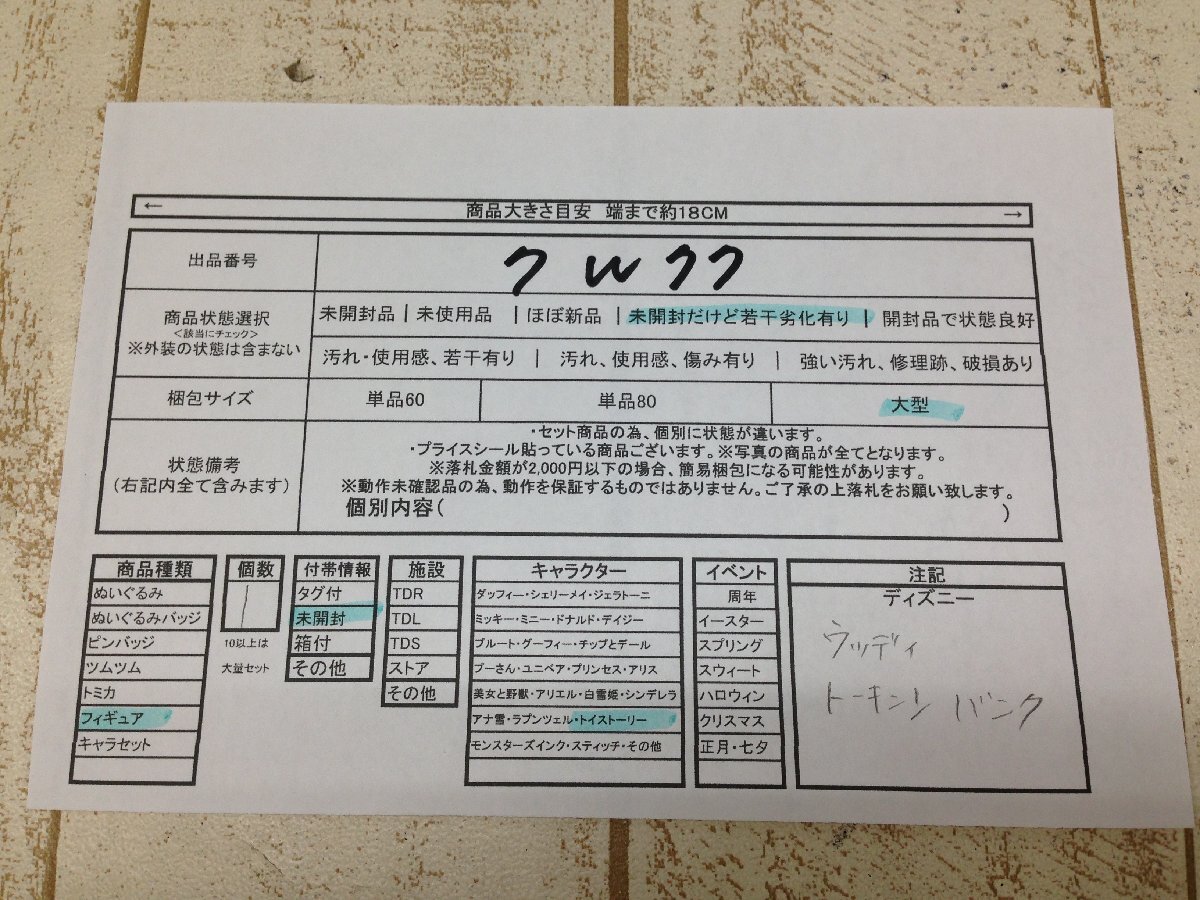 ← 商品大きさ目安 端まで約18CM →
出品番号 7 W 77
商品状態選択
<該当にチェック>
※外装の状態は含まない
未開封品 | 未使用品 | ほぼ新品 | 未開封だけど若干劣化有り | 開封品で状態良好
汚れ・使用感、若干有り | 汚れ、使用感、傷み有り | 強い汚れ、修理跡、破損あり
梱包サイズ 単品60 単品80 大型
状態備考
(右記内全て含みます)
・セット商品の為、個別に状態が違います。
・プライスシール貼っている商品ございます。※写真の商品が全てとなります。
※落札金額が2,000円以下の場合、簡易梱包になる可能性があります。
※動作未確認品の為、動作を保証するものではありません。ご了承の上落札をお願い致します。
個別内容( )
商品種類
ぬいぐるみ
ぬいぐるみバッジ
ピンバッジ
ツムツム
トミカ
フィギュア
キャラセット
個数
1
10以上は
大量セット
付帯情報
タグ付
未開封
箱付
その他
施設
TDR
TDL
TDS
ストア
その他
キャラクター
ダッフィー・シェリーメイ・ジェラトーニ
ミッキー・ミニー・ドナルド・デイジー
プルート・グーフィー・チップとデール
プーさん・ユニベア・プリンセス・アリス
美女と野獣・アリエル・白雪姫・シンデレラ
アナ雪・ラプンツェル・トイストーリー
モンスターズインク・スティッチ・その他
イベント
周年
イースター
スプリング
スウィート
ハロウィン
クリスマス
正月・七夕
注記
ディズニー
ウッディ
トーキング バンク